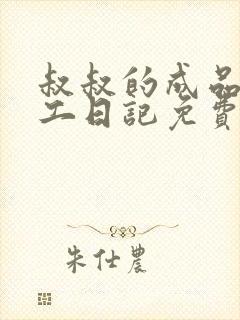 叔叔的成品
工日记免费
朱仕農